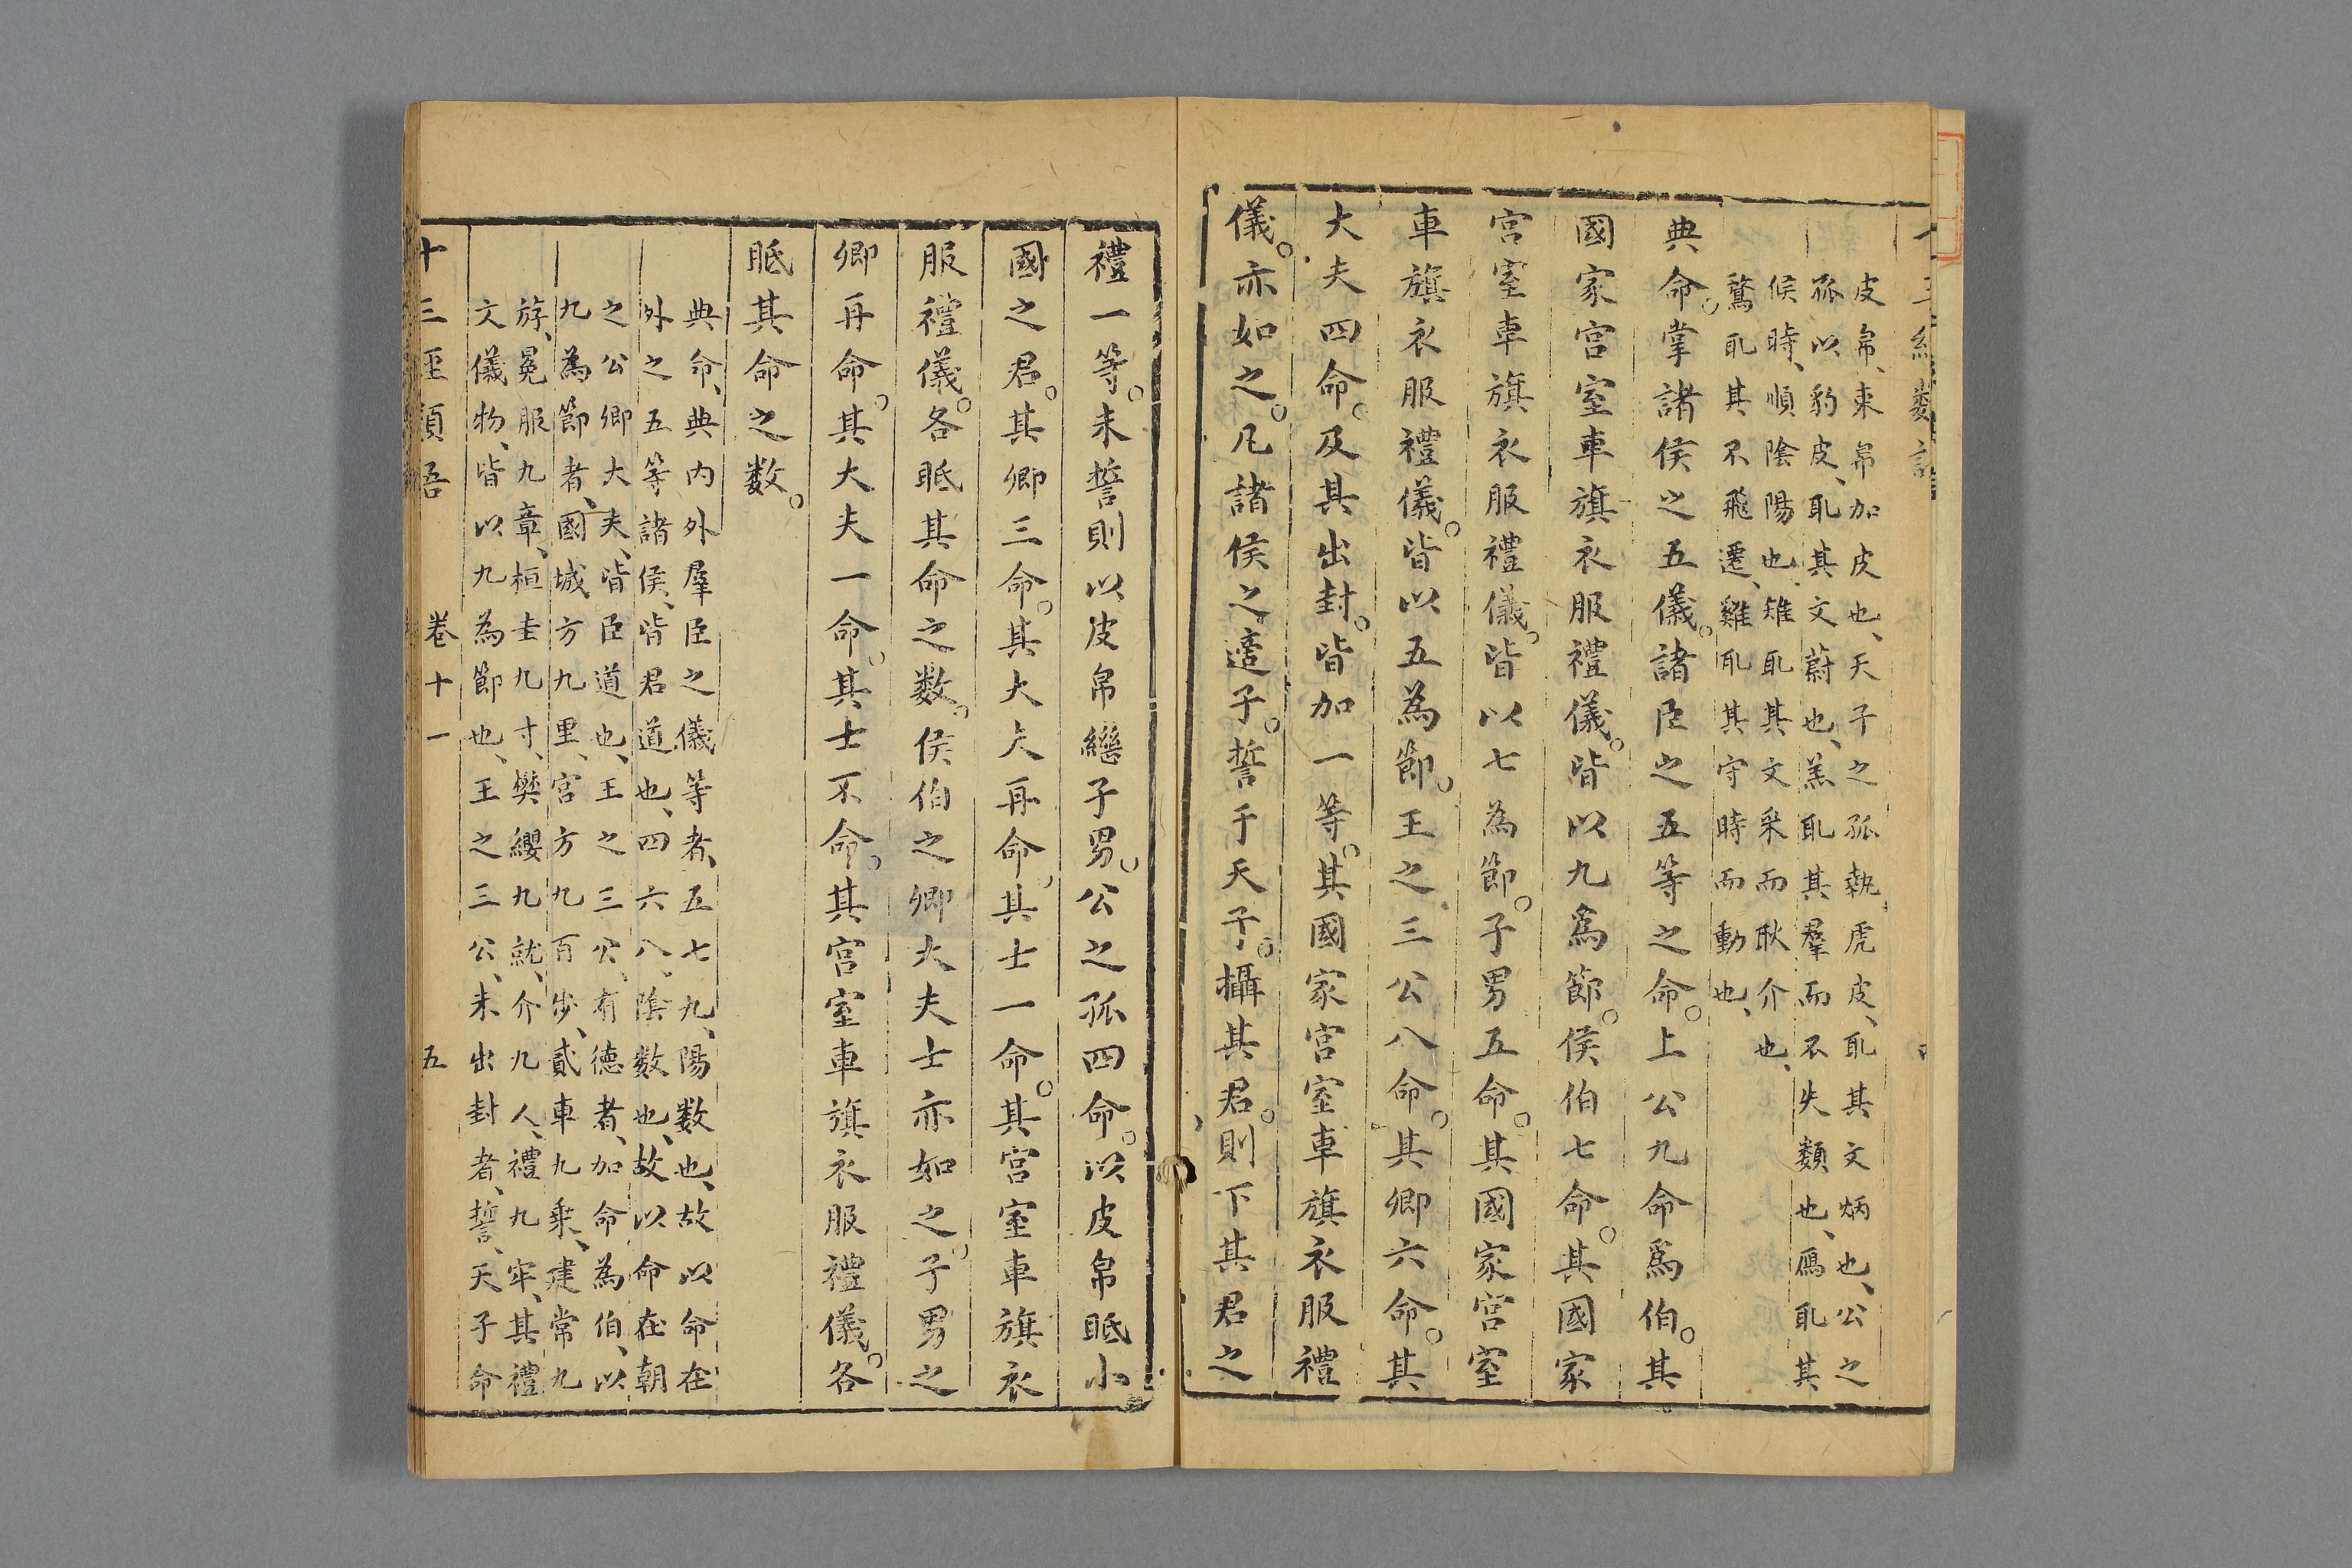 皮帛、束帛加皮也、天子之孤執虎皮、耴其文炳也、公之
孤以豹皮、耴其文蔚也、羔耴其羣而不失類也、鴈耴其
候時、順陰陽也、雉耴其文采而耿介也、
鶩耴其不飛遷、雞耴其守時而動也、
典命。掌諸侯之五儀。諸臣之五等之命。上公九命爲伯。其
國家宮室車旗衣服禮儀。皆以九爲節。侯伯七命。其國家
宮室車旗衣服禮儀。皆以七為節。子男五命。其國家宮室
車旗衣服禮儀。皆以五為節。王之三公八命。其卿六命。其
大夫四命。及其出封。皆加一等。其國家宮室車旗衣服禮
儀。亦如之。凡諸侯之適子。誓于天子。攝其君。則下其君之
禮一等。未誓則以皮帛繼子男。公之孤四命。以皮帛眡小
國之君。其卿三命。其大夫再命。其士一命。其宮室車旗衣
服禮儀。各眡其命之数。侯伯之卿大夫士亦如之。子男之
卿再命。其大夫一命。其士不命。其宮室車旗衣服禮儀。各
眡其命之数。
典命、典内外羣臣之儀等者、五七九、陽数也、故以命在
外之五等諸侯、皆君道也、四六八、陰数也、故以命在朝
之公卿大夫、皆臣道也、王之三公、有德者、加命為伯、以
九為節者、國城方九里、宮方九百步、貳車九乘、建常九
斿、冕服九章、桓圭九寸、樊纓九就、介九人、禮九牢、其禮
文儀物、皆以九為節也、王之三公、未出封者、誓、天子命
卷十一　五